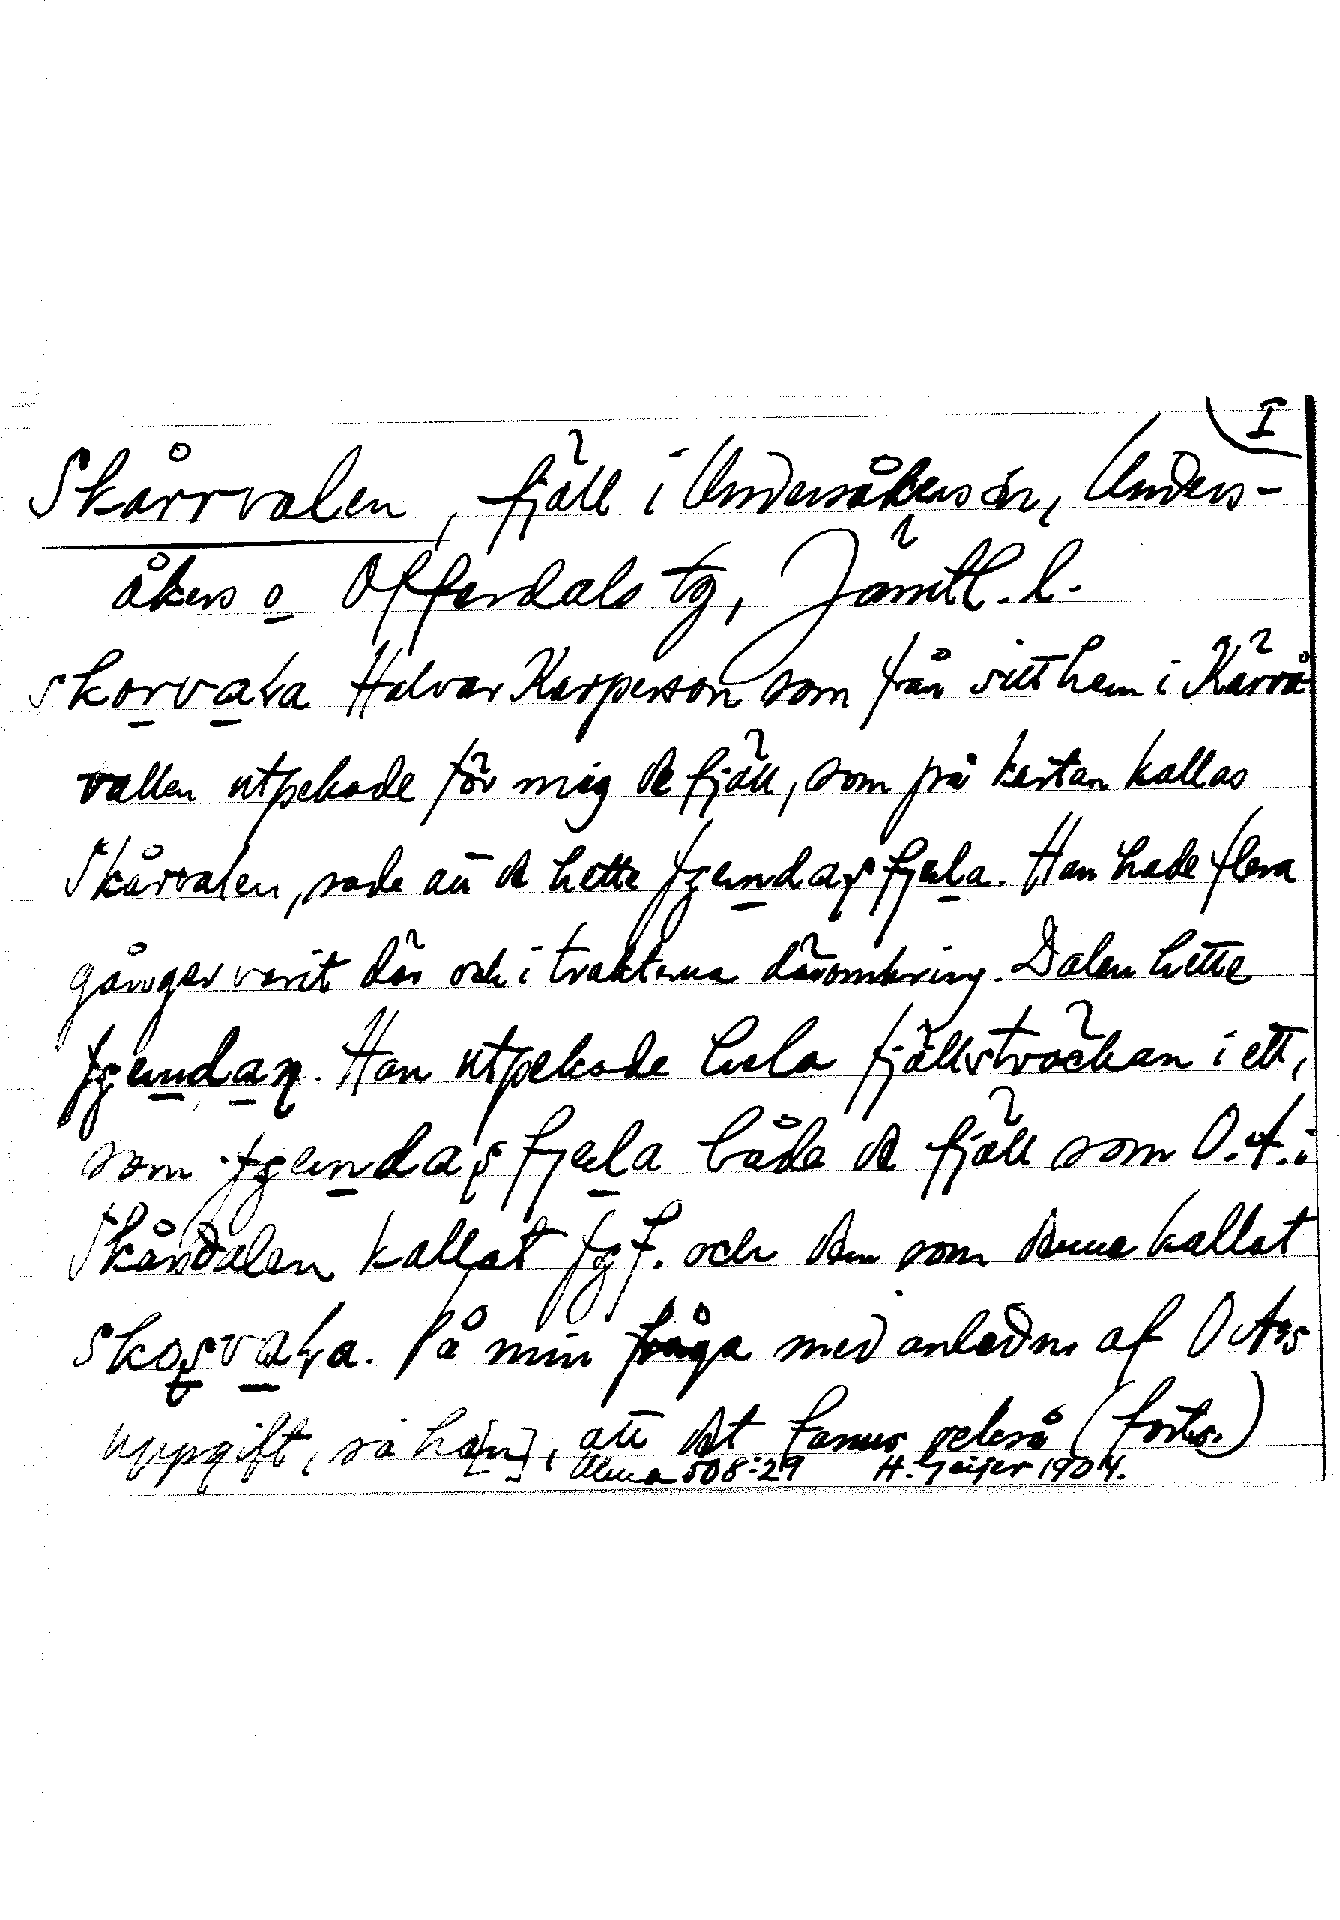 I
Skårrvalen, fjäll i Undersåkers sn, Unders-
åkers o Offerdals tg, Jämtl. l.
skorvala Halvar Karperson som från sitt hem i Kärrå
vallen utpekade för mig de fjäll, som på kartan kallas
Skårvalen, sade att de hette fjela. Han hade flera
gånger varit där och i trakterna däromkring. Dalen hette
Han utpekade hela fjällsträckan i ett,
som fjela både de fjäll som O.A. i
Skårdalen kallat och den som denne kallat
På min fråga med anledn af O As
uppgift, sa han, att det fanns också (forts.)
Alma 508:29 H. Geijer 1904.